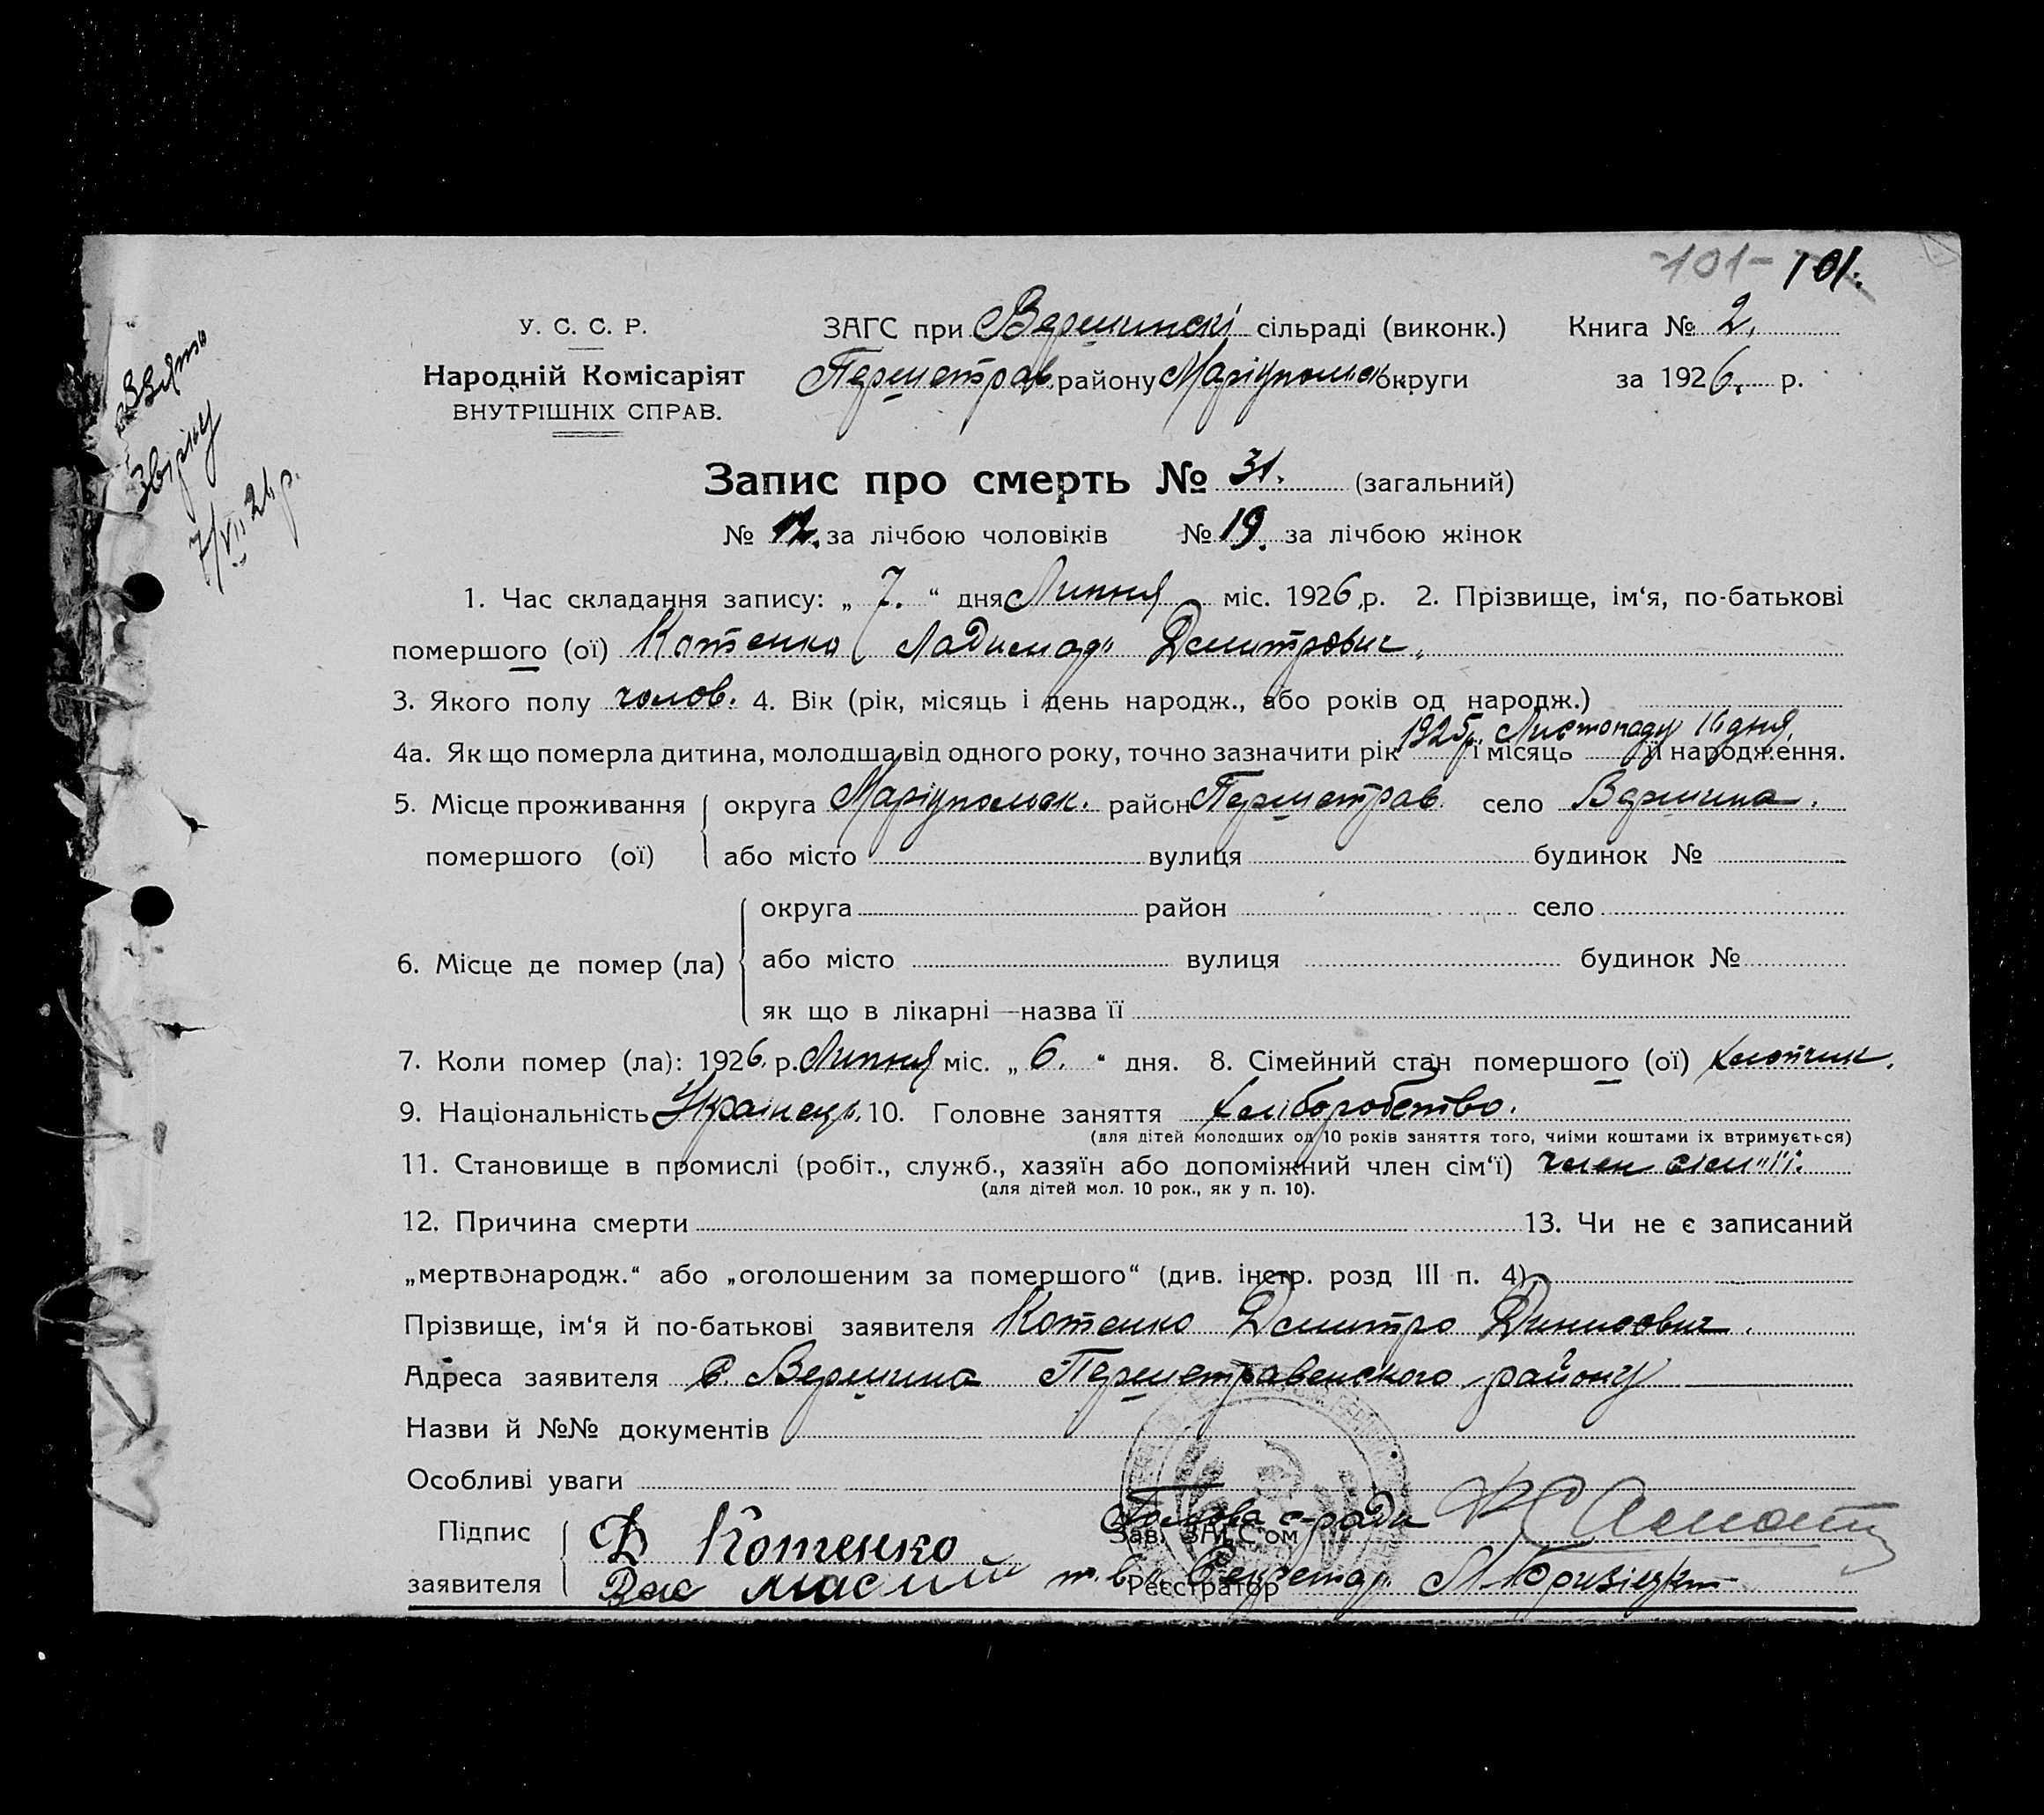 -101- 101.
У. С. С. Р.
Народній Комісаріят
ВНУТРІШНІХ СПРАВ.
ЗАГС при Вершинскі сільраді (виконк.) Книга № 2.
Першотрав. району Маріупольськ округи за 1926. р.
взято
звірку
7/VII 26 р.
Запис про смерть № 31. (загальний)
№ 12. за лічбою чоловіків № 19. за лічбою жінок
1. Час складання запису: „ 7. “ дня Липня міс. 1926 р. 2. Прізвище, ім‘я, по-батькові
помершого (ої) Котенко Ладимар Дмитрович
3. Якого полу чолов. 4. Вік (рік, місяць і день народж., або років од народж.)
4а. Як що померла дитина, молодша від одного року, точно зазначити рік 1925 р. і місяць Листопаду 16 дня її народження.
5. Місце проживання округа Маріупольськ. район Першотрав. село Вершина.
помершого (ої) або місто вулиця будинок №
округа район село
6. Місце де помер (ла) або місто вулиця будинок №
як що в лікарні—назва її
7. Коли помер (ла): 1926. р. Липня міс. „ 6. “ дня. 8. Сімейний стан помершого (ої) хлопчик.
9. Національність Українець. 10. Головне заняття хліборобство.
(для дітей молодших од 10 років заняття того, чиїми коштами їх втримується)
11. Становище в промислі (робіт., служб., хазяїн або допоміжний член сім‘ї) член сімʼї.
(для дітей мол. 10 рок., як у п. 10).
12. Причина смерти 13. Чи не є записаний
„мертвонародж.“ або „оголошеним за помершого“ (див. інстр. розд III п. 4)
Прізвище, ім‘я й по-батькові заявителя Котенко Дмитро Динисович.
Адреса заявителя с. Вершина Першотравенского району
Назви й №№ документів
Особливі уваги
Підпис Д Котенко Голова с-ради
Зав. ЗАГС‘ом
заявителя т. в. Секретар.
Реєстратор